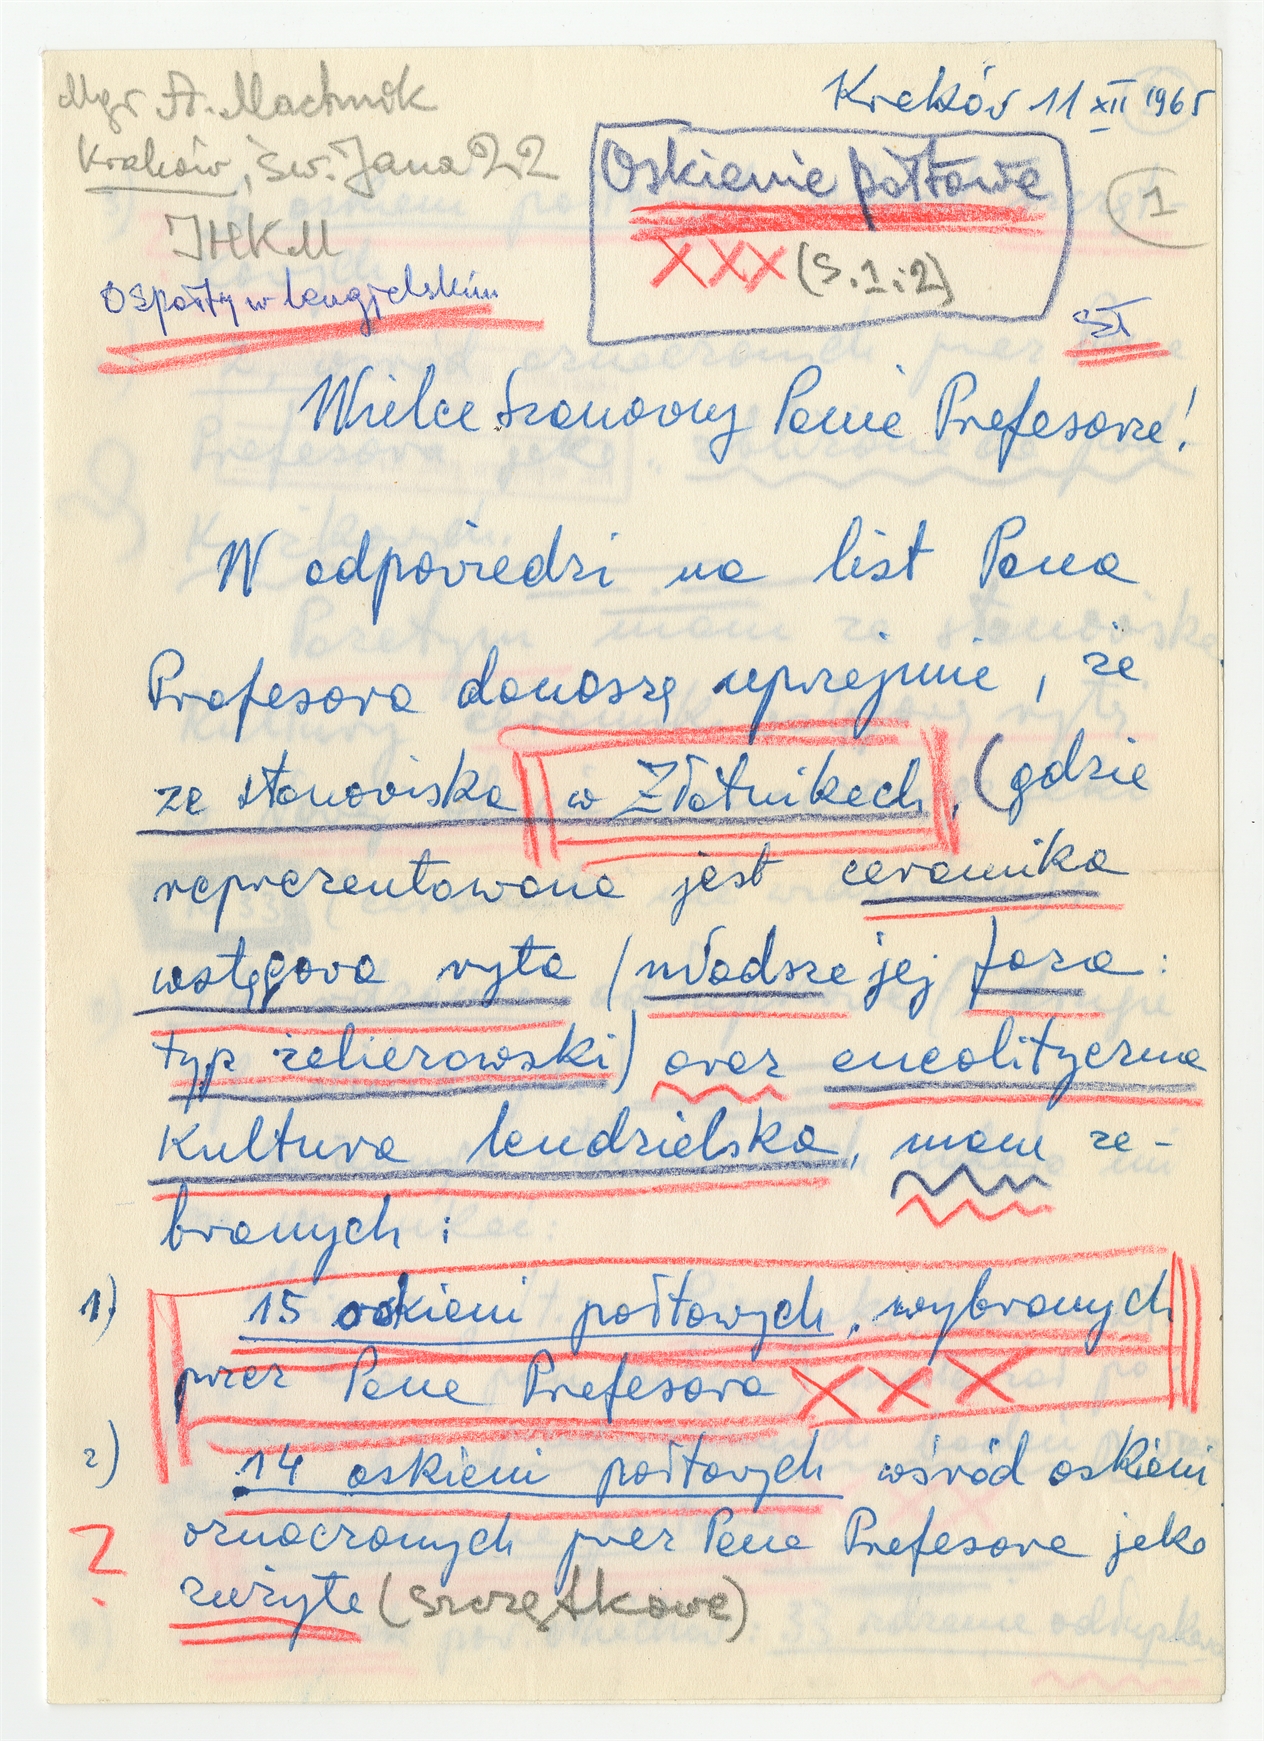 Mgr A. Machnik
Kraków, św. Jana 22
IHKM
Kraków 11 XII 1965
Oskienie półtowe
XXX (S. 1 i 2)
1
O społty w lengjelskim
ST
Wielce Szanowny Panie Profesorze!
W odpowiedzi na list Pana
Profesora donoszę uprzejmie, że
ze stanowiska w Złotnikach, (gdzie
reprezentowana jest ceramika
wstęgowa ryta (młodsza jej faza:
typ żelierowski) oraz eneolityczna
kultura lendzielska, mam ze-
branych:
1) 15 oskieni półtowych, wybranych
przez Pana Profesora XXX
2) 14 oskieni półtowych wśród oskieni
oznaczonych przez Pana Profesora jako
? zużyte (szczątkowe)